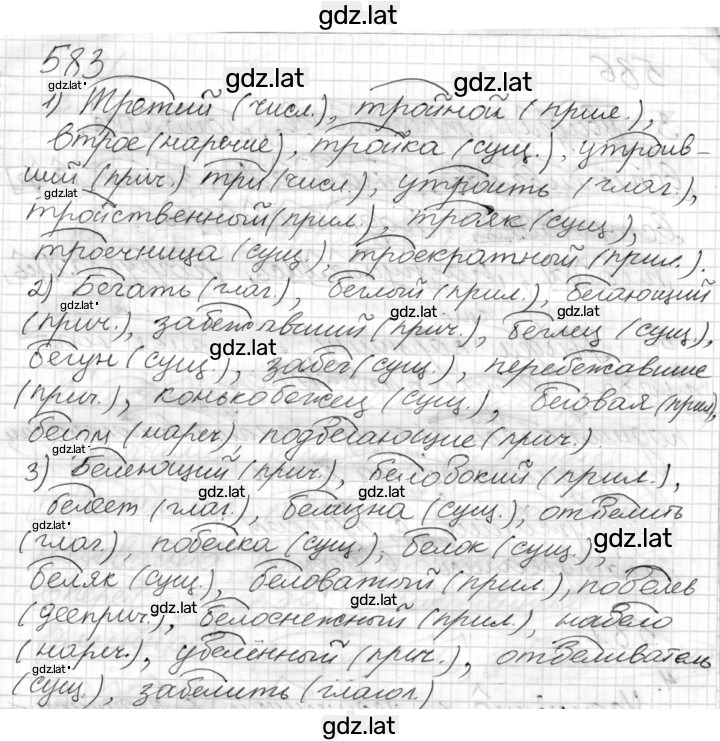 gdz.lat
583
gdz.lat
gdz.lat
gdz.lat
1) Третий (числ.), тройной (прил.),
втрое (наречие), тройка (сущ.), утроив-
ший (прич.) три (числ.), утроить (глаг.),
gdz.lat
тройственный (прил.), трояк (сущ.),
троечница (сущ.), троекратный (прил.).
2) Бегать (глаг.), беглый (прил.), бегающий
gdz.lat
gdz.lat
gdz.lat
(прич.), забежавший (прич.), беглец (сущ.),
gdz.lat
бегун (сущ.), забег (сущ.), перебежавшие
(прич.), конькобежец (сущ.), беговая (прил.),
бегом (нареч), подбегающие (прич.)
gdz.lat
3) Белеющий (прич.), белобокий (прил.),
gdz.lat
gdz.lat
белеет (глаг.), белизна (сущ.), отбелить
gdz.lat
(глаг.), побелка (сущ.), белок (сущ.),
беляк (сущ.), беловатый (прил.), побелев
gdz.lat
gdz.lat
(дееприч.), белоснежный (прил.), набело
(нареч.), убелённый (прич.), отбеливатель
gdz.lat
(сущ.), забелить (глагол)
gdz.lat